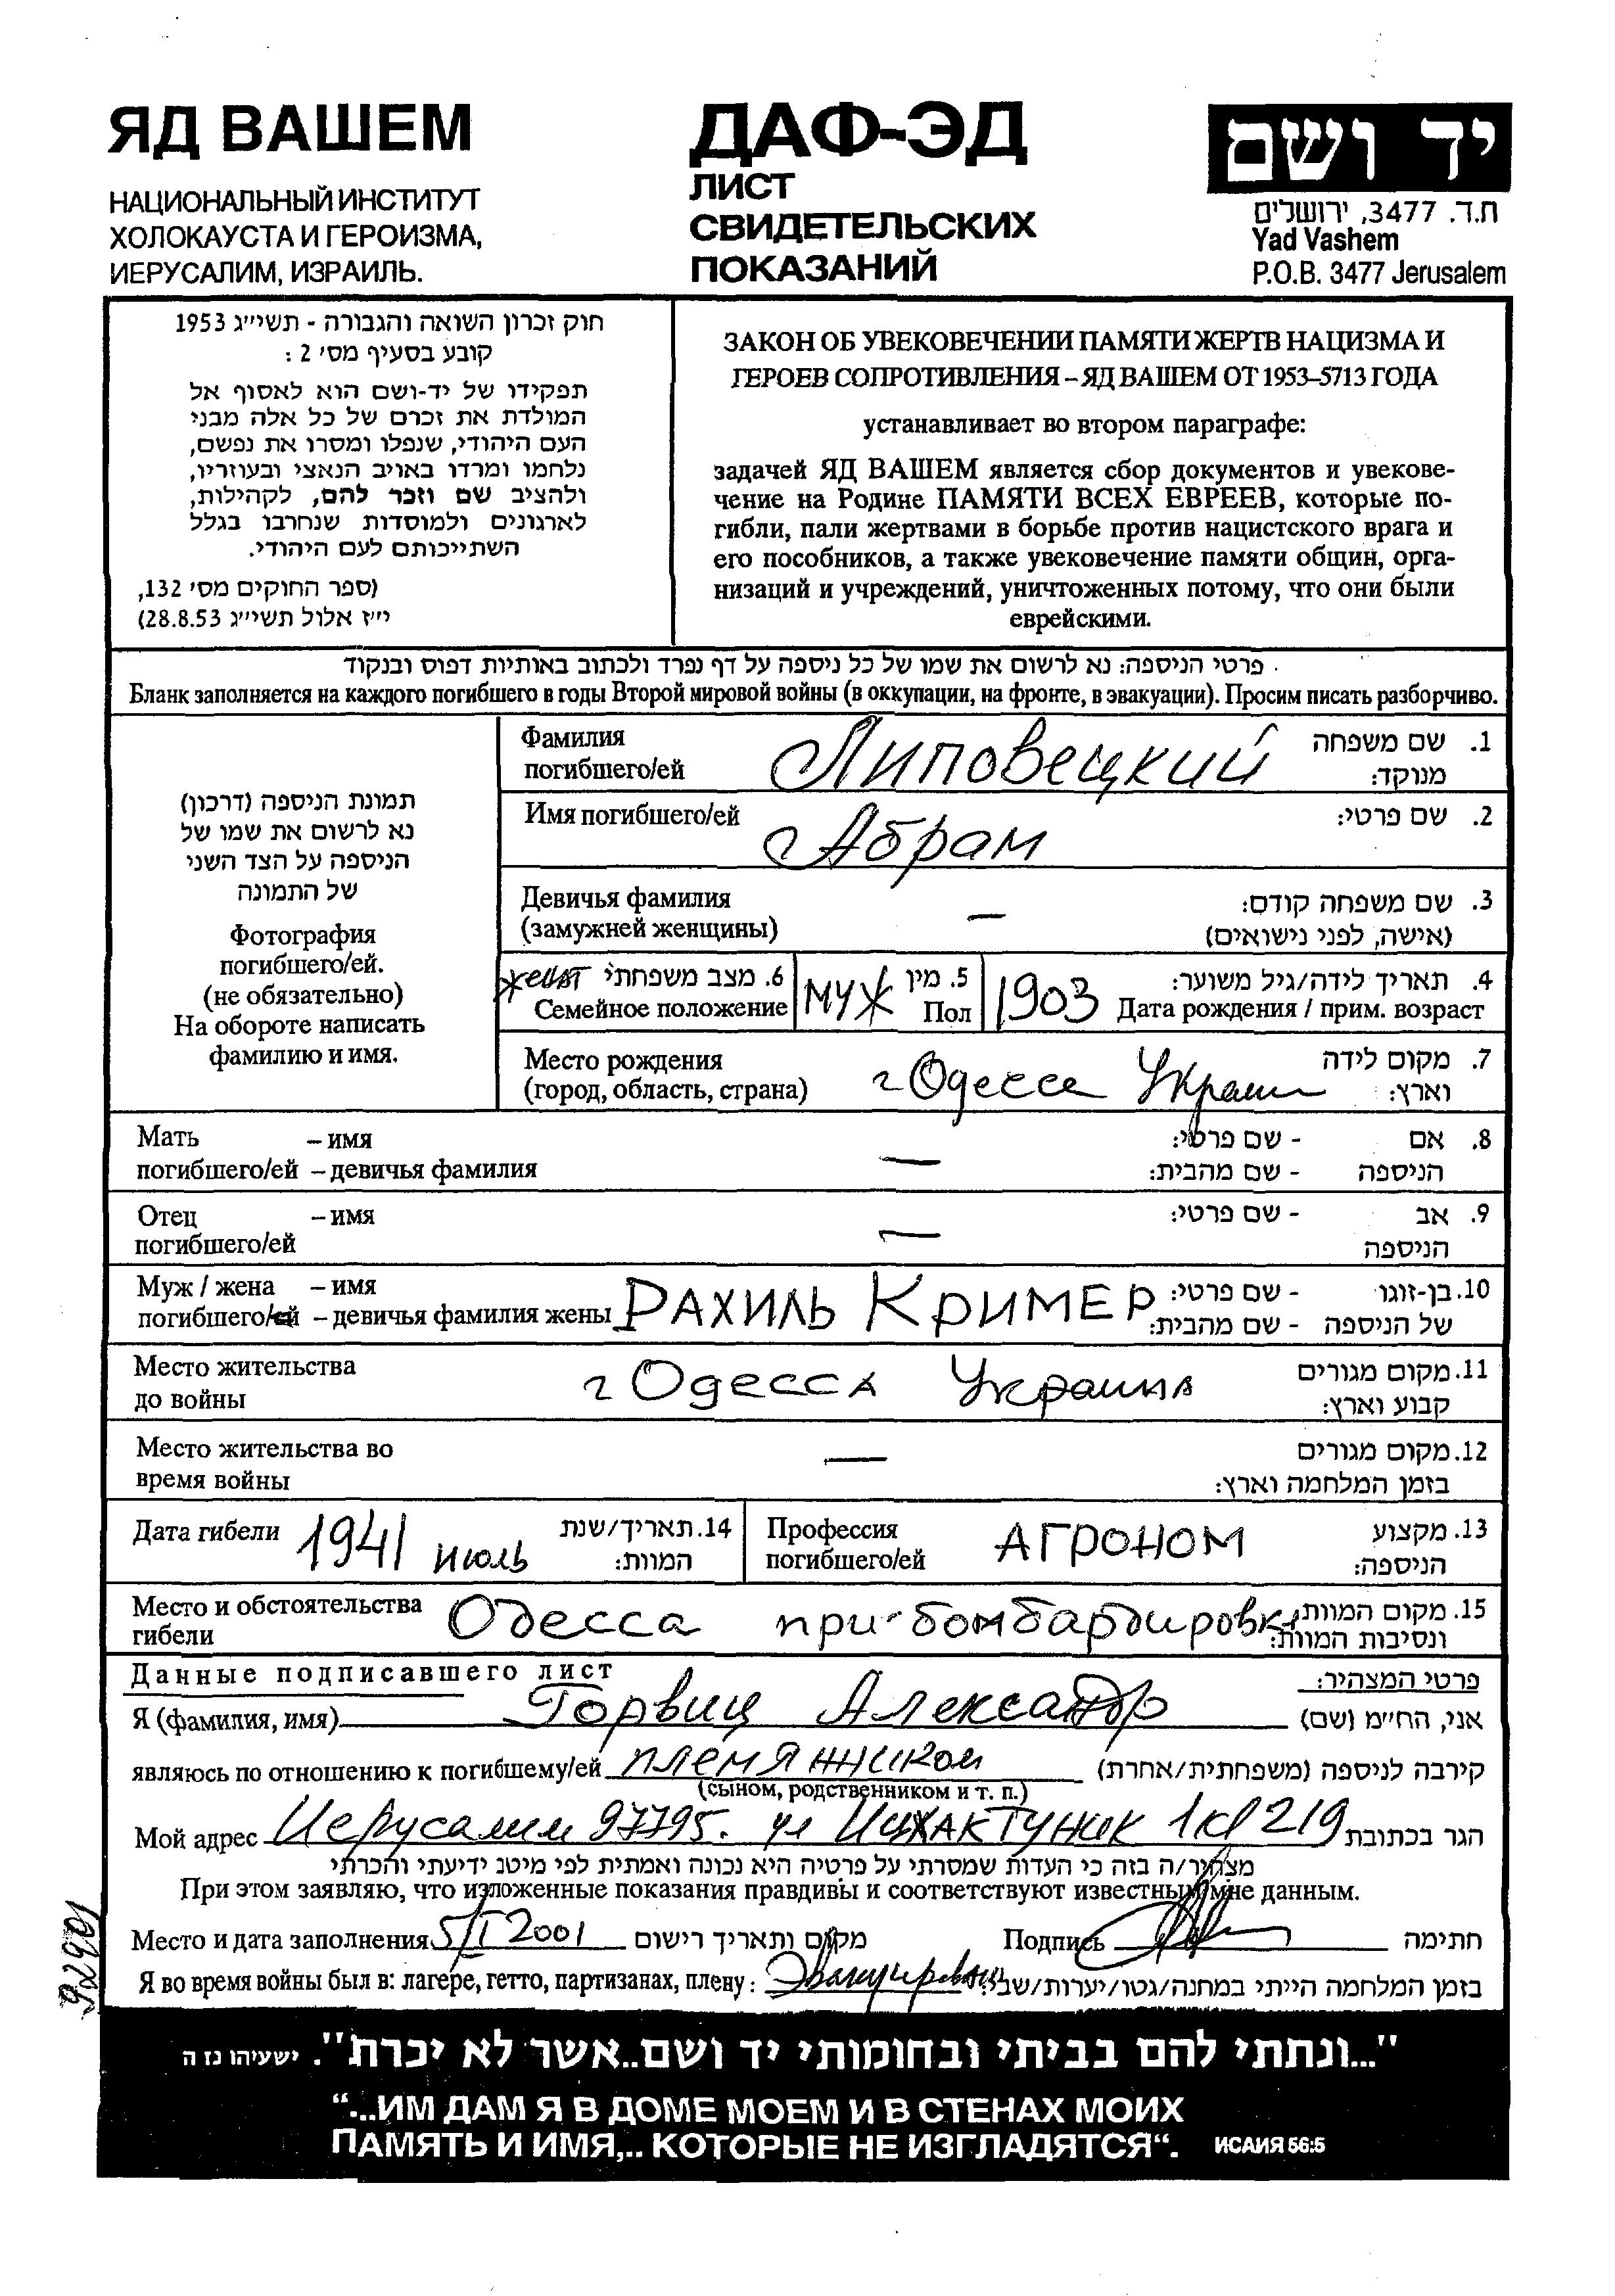 ЯД ВАШЕМ
НАЦИОНАЛЬНЫЙ ИНСТИТУТ
ХОЛОКАУСТА И ГЕРОИЗМА,
ИЕРУСАЛИМ, ИЗРАИЛЬ.
ДАФ-ЭД
ЛИСТ
СВИДЕТЕЛЬСКИХ
ПОКАЗАНИЙ
יד ושם
ת.ד. 3477, ירושלים
Yad Vashem
P.O.B. 3477 Jerusalem
חוק זכרון השואה והגבורה - תשי״ג 1953
קובע בסעיף מס׳ 2 :
תפקידו של יד-ושם הוא לאסוף אל
המולדת את זכרם של כל אלה מבני
העם היהודי, שנפלו ומסרו את נפשם,
נלחמו ומרדו באויב הנאצי ובעוזריו,
ולהציב שם וזכר להם, לקהילות,
לארגונים ולמוסדות שנחרבו בגלל
השתייכותם לעם היהודי.
(ספר החוקים מס׳ 132,
י״ז אלול תשי״ג 28.8.53)
ЗАКОН ОБ УВЕКОВЕЧЕНИИ ПАМЯТИ ЖЕРТВ НАЦИЗМА И
ГЕРОЕВ СОПРОТИВЛЕНИЯ – ЯД ВАШЕМ ОТ 1953–5713 ГОДА
устанавливает во втором параграфе:
задачей ЯД ВАШЕМ является сбор документов и увекове-
чение на Родине ПАМЯТИ ВСЕХ ЕВРЕЕВ, которые по-
гибли, пали жертвами в борьбе против нацистского врага и
его пособников, а также увековечение памяти общин, орга-
низаций и учреждений, уничтоженных потому, что они были
еврейскими.
פרטי הניספה: נא לרשום את שמו של כל ניספה על דף נפרד ולכתוב באותיות דפוס ובנקוד
Бланк заполняется на каждого погибшего в годы Второй мировой войны (в оккупации, на фронте, в эвакуации). Просим писать разборчиво.
תמונת הניספה (דרכון)
נא לרשום את שמו של
הניספה על הצד השני
של התמונה
Фотография
погибшего/ей.
(не обязательно)
На обороте написать
фамилию и имя.
Фамилия Липовецкий 1. שם משפחה
погибшего/ей מנוקד:
Имя погибшего/ей Абрам 2. שם פרטי:
Девичья фамилия — 3. שם משפחה קודם:
(замужней женщины) (אישה, לפני נישואים)
женат 6. מצב משפחתי муж 5. מין 1903 4. תאריך לידה/גיל משוער:
Семейное положение Пол Дата рождения / прим. возраст
Место рождения г Одесса 7. מקום לידה
(город, область, страна) וארץ:
Мать – имя — 8. אם - שם פרטי:
погибшего/ей – девичья фамилия הניספה - שם מהבית:
Отец – имя — 9. אב - שם פרטי:
погибшего/ей הניספה
Муж / жена – имя РАХИЛЬ КРИМЕР 10. בן-זוגו - שם פרטי:
погибшего/ей – девичья фамилия жены של הניספה - שם מהבית:
Место жительства г Одесса Украина 11. מקום מגורים
до войны קבוע וארץ:
Место жительства во — 12. מקום מגורים
время войны בזמן המלחמה וארץ:
Дата гибели 1941 июль 14. תאריך/שנת
המוות:
Профессия АГРОНОМ 13. מקצוע
погибшего/ей הניספה:
Место и обстоятельства Одесса при бомбардировке 15. מקום המוות
гибели ונסיבות המוות:
Данные подписавшего лист פרטי המצהיר:
Я (фамилия, имя) Горвиц Александр אני, הח״מ (שם)
являюсь по отношению к погибшему/ей племянником קירבה לניספה (משפחתית/אחרת)
(сыном, родственником и т. п.)
Мой адрес Иерусалим 97795. ул ИЦХАК ТУНИК 1 кв 219 הגר בכתובת
מצהיר/ה בזה כי העדות שמסרתי על פרטיה היא נכונה ואמתית לפי מיטב ידיעתי והכרתי
При этом заявляю, что изложенные показания правдивы и соответствуют известным мне данным.
Место и дата заполнения 5/I 2001 מקום ותאריך רישום Подпись חתימה
Я во время войны был в: лагере, гетто, партизанах, плену: Эвакуирован בזמן המלחמה הייתי במחנה/גטו/יערות/שבי:
92901
"...ונתתי להם בביתי ובחומותי יד ושם..אשר לא יכרת". ישעיהו נז ה
“...ИМ ДАМ Я В ДОМЕ МОЕМ И В СТЕНАХ МОИХ
ПАМЯТЬ И ИМЯ,.. КОТОРЫЕ НЕ ИЗГЛАДЯТСЯ“. ИСАИЯ 56:5